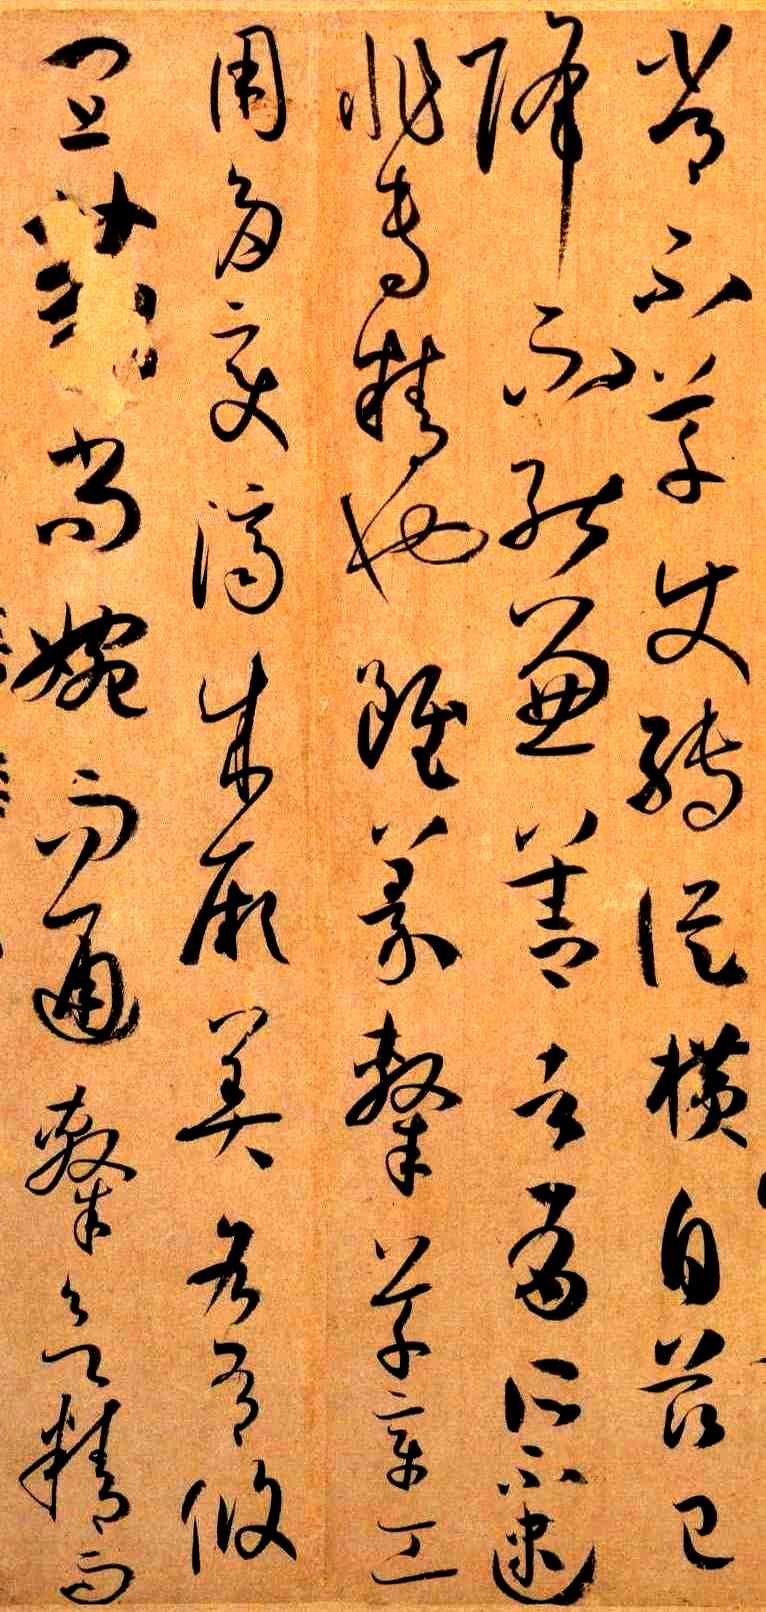 常不草使轉從橫自茲已
降不能兼善者有所不逮
非專精也雖篆隸草章工
用多變濟成厥美各有攸
宜篆尚婉而通隸欲精而